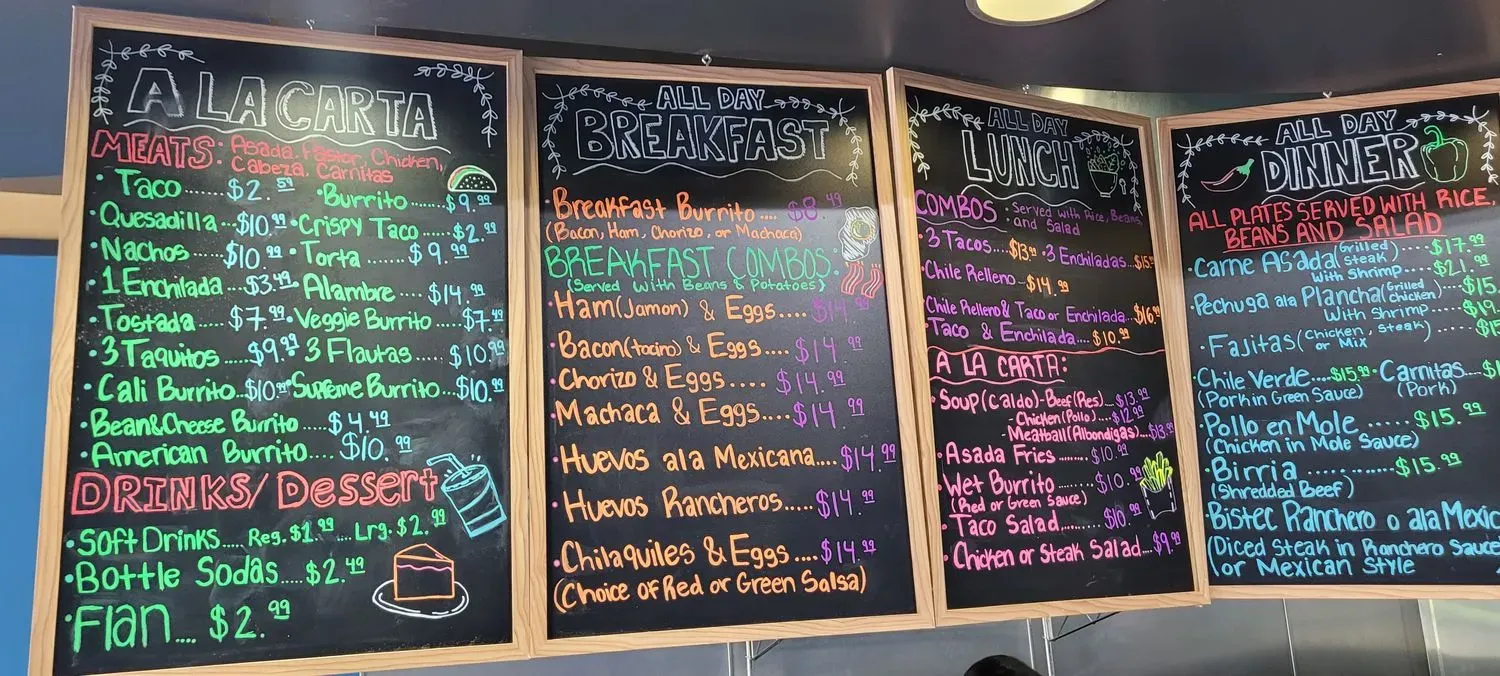 A LA CARTA
MEATS: Asada, Pastor, Chicken,
Cabeza, Carnitas
• Taco...... $2.59 • Burrito...... $9.99
• Quesadilla... $10.99 • Crispy Taco..... $2.99
• Nachos $10.99 • Torta ...... $9.99
• 1 Enchilada $3.49 • Alambre .... $14.99
• Tostada ..... $7.99 • Veggie Burrito..... $7.49
• 3 Taquitos ..... $9.99 3 Flautas .... $10.99
• Cali Burrito..$10.99 • Supreme Burrito...$10.99
• Bean&Cheese Burrito .... $4.49
• American Burrito.... $10.99
DRINKS/Dessert
• Soft Drinks.... Reg. $1.99 ... Lrg. $2.99
• Bottle Sodas.... $2.49
• Flan.... $2.99
ALL DAY
BREAKFAST
• Breakfast Burrito .... $8.49
(Bacon, Ham, Chorizo, or Machaca)
BREAKFAST COMBOS.
(Served With Beans & Potatoes)
• Ham(Jamon) & Eggs.... $14.99
• Bacon(tocino) & Eggs.... $14.99
• Chorizo & Eggs.... $14.99
• Machaca & Eggs.... $14.99
• Huevos ala Mexicana.... $14.99
• Huevos Rancheros..... $14.99
• Chilaquiles & Eggs ....$14.99
(Choice of Red or Green Salsa)
ALL DAY
LUNCH
COMBOS: Served with Rice, Beans,
and Salad
• 3 Tacos....$13.99 • 3 Enchiladas...$15.
• Chile Relleno - $14.99
• Chile Relleno & Taco or Enchilada...$16.99
• Taco & Enchilada.... $10.99
A LA CARTA:
• Soup (Caldo)-Beef (Res). $13.99
- Chicken (Pollo)...$12.99
- Meatball (Albondigas)....$13.99
• Asada Fries ........ $10.99
• Wet Burrito ...... $10.99
(Red or Green Sauce)
• Taco Salad......... $10.99
• Chicken or Steak Salad...$9.99
ALL DAY
DINNER
ALL PLATES SERVED WITH RICE,
BEANS AND SALAD
• Carne Asada (Grilled Steak) ... $17.99
With Shrimp.... $21.99
• Pechuga ala Plancha (Grilled Chicken)... $15.
With Shrimp.... $19.
• Fajitas (Chicken, Steak or Mix) ..... $15
• Chile Verde....$15.99 • Carnitas....$
(Pork in Green Sauce) (Pork)
• Pollo en Mole ......$15.99
(Chicken in Mole Sauce)
• Birria ............. $15.99
(Shredded Beef)
• Bistec Ranchero o ala Mexic
(Diced Steak in Ranchero Sauce
or Mexican Style